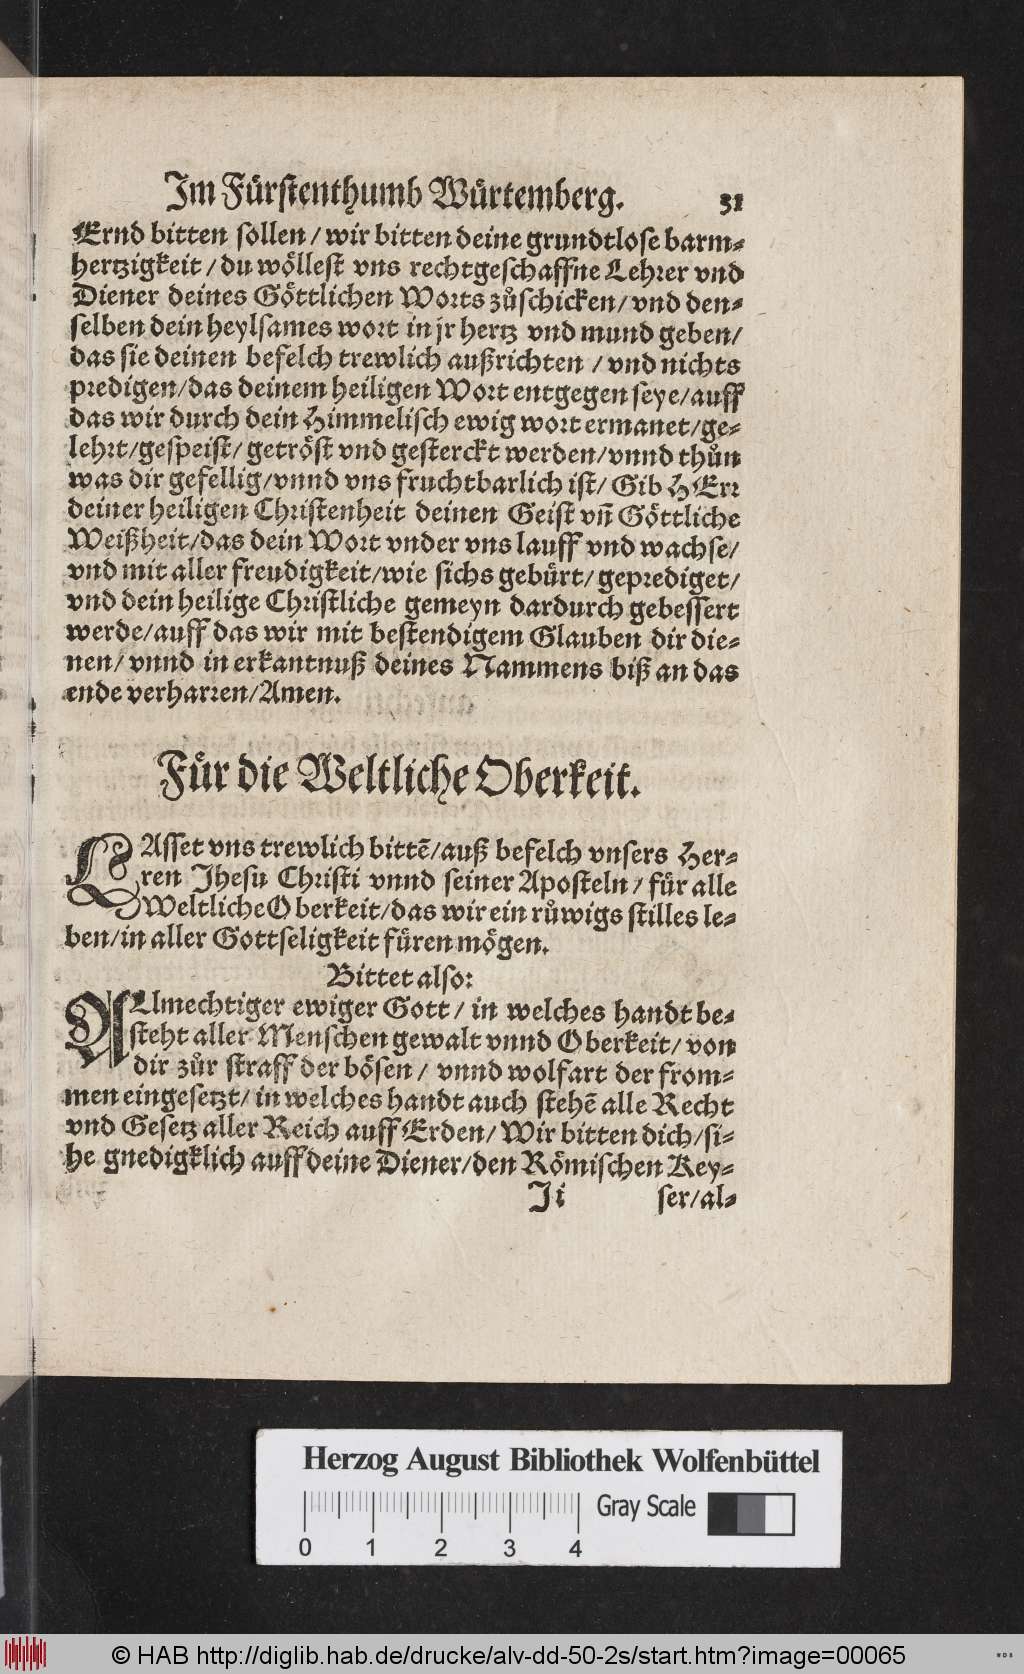 Im Fürstenthumb Würtemberg. 31
Ernd bitten sollen / wir bitten deine grundtlose barm-
hertzigkeit / du wöllest vns rechtgeschaffne Lehrer vnd
Diener deines Göttlichen Worts zůschicken / vnd den-
selben dein heylsames wort in jr hertz vnd mund geben /
das sie deinen befelch trewlich außrichten / vnd nichts
predigen / das deinem heiligen Wort entgegen seye / auff
das wir durch dein Himmelisch ewig wort ermanet / ge-
lehrt / gespeist / getröst vnd gesterckt werden / vnnd thůn
was dir gefellig / vnnd vns fruchtbarlich ist / Gib HErr
deiner heiligen Christenheit deinen Geist vñ Göttliche
Weißheit / das dein Wort vnder vns lauff vnd wachse /
vnd mit aller freudigkeit / wie sichs gebürt / geprediget /
vnd dein heilige Christliche gemeyn dardurch gebessert
werde / auff das wir mit bestendigem Glauben dir die-
nen / vnnd in erkantnuß deines Nammens biß an das
ende verharren / Amen.
Für die Weltliche Oberkeit.
LAsset vns trewlich bittẽ / auß befelch vnsers Her-
ren Jhesu Christi vnnd seiner Aposteln / für alle
Weltliche Oberkeit / das wir ein růwigs stilles le-
ben / in aller Gottseligkeit füren mögen.
Bittet also:
ALmechtiger ewiger Gott / in welches handt be-
steht aller Menschen gewalt vnnd Oberkeit / von
dir zůr straff der bösen / vnnd wolfart der from-
men eingesetzt / in welches handt auch stehẽ alle Recht
vnd Gesetz aller Reich auff Erden / Wir bitten dich / si-
he gnedigklich auff deine Diener / den Römischen Key-
Ji ser / al-
Herzog August Bibliothek Wolfenbüttel
Gray Scale
0 1 2 3 4
© HAB http://diglib.hab.de/drucke/alv-dd-50-2s/start.htm?image=00065